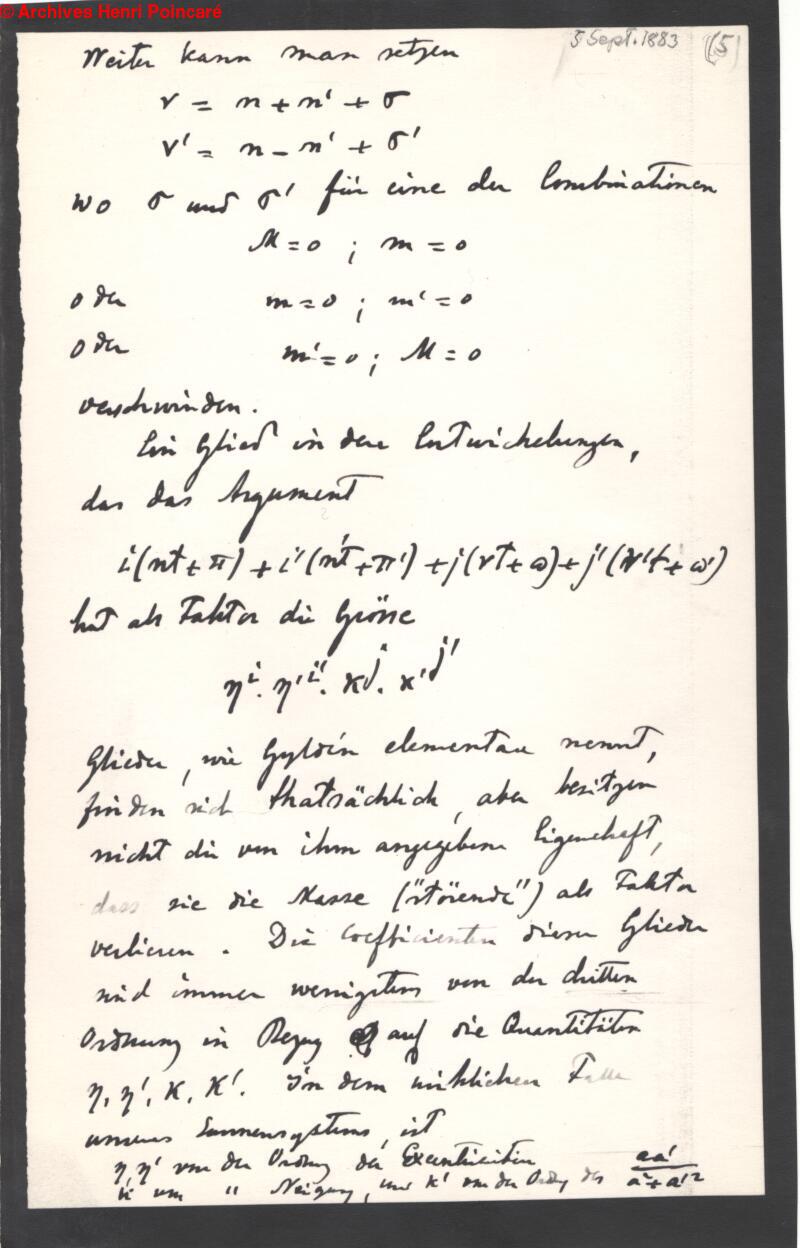 © Archives Henri Poincaré
5 Sept. 1883 (5)
Weiter kann man setzen
ν = n + n' + σ
ν' = n - n' + σ'
wo σ und σ' für eine der Combinationen
M = 0 ; m = 0
oder m = 0 ; m' = 0
oder m' = 0 ; M = 0
verschwinden.
Ein Glied in den Entwickelungen,
das das Argument
i(nt + π) + i'(n't + π') + j(νt + ω) + j'(ν't + ω')
hat als Faktor die Grösse
η^i · η'^i' · κ^j · κ'^j'
Glieder, wie Gyldén elementare nennt,
finden sich thatsächlich, aber besitzen
nicht die von ihm angegebene Eigenschaft,
dass sie die Masse ("störende") als Faktor
verlieren. Die Coefficienten dieser Glieder
sind immer wenigstens von der dritten
Ordnung in Bezug auf die Quantitäten
η, η', κ, κ'. In dem wirklichen Falle
unseres Sonnensystems, ist
η, η' von der Ordnung der Excentricitäten
κ von " Neigung, und κ' von der Ordng des aa'/(a²+a'²)